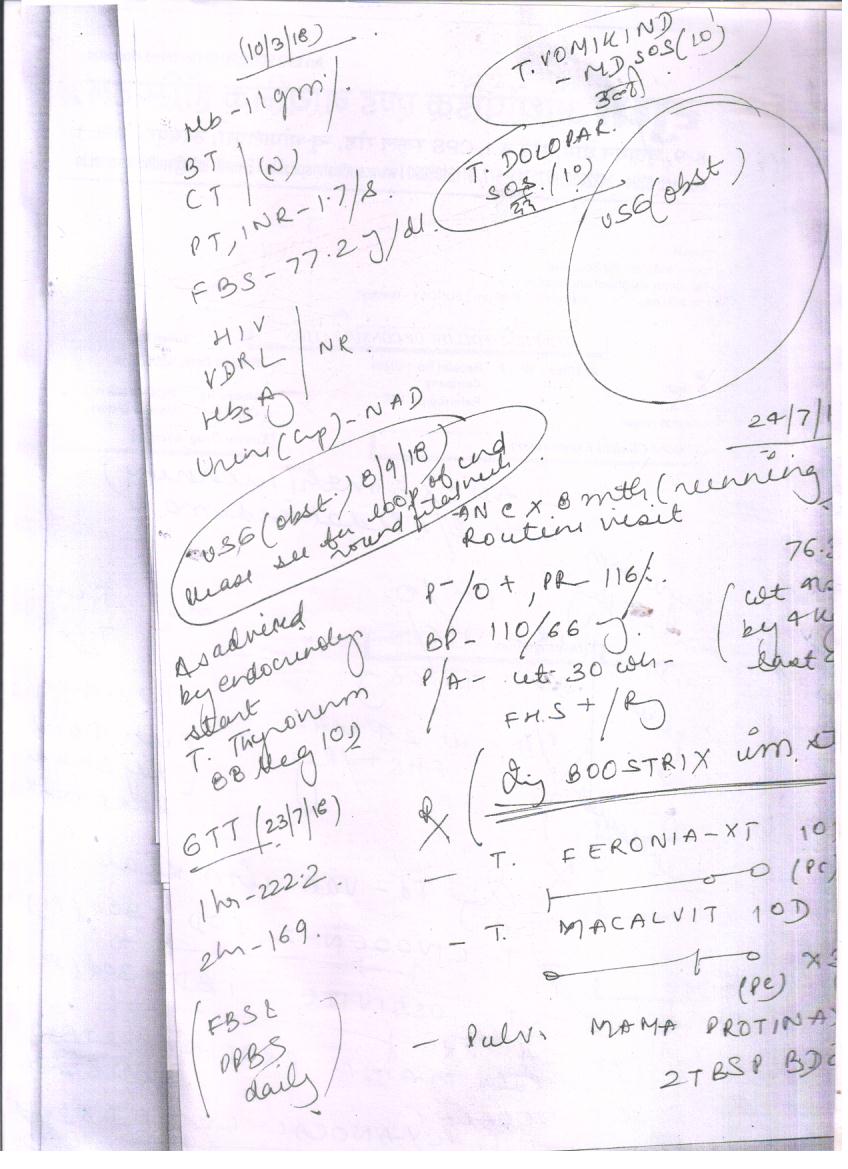 (10/3/18)
Hb - 11 gm%.
B
CT (N)
PT, INR - 1.7/s.
FBS - 77.2 g/dl.
HIV
VDRL NR.
HbsAg
Urine (Cup) - NAD
USG (obst.) 8/9/18
Please see for loop of cord
round fetal neck
As advised
by endocrinology
start
T. Thyronorm
88 mcg 1OD
GTT (23/7/18)
1hr - 222.2
2hr - 169.
(FBS &
PPBS
daily)
T. VOMIKIND
MD SOS (10)
T. DOLOPAR.
SOS (10)
USG (obst)
24/7/1
ANC x 8 mth (running
Routine visit
P - /O +, PR 116/.
BP - 110/66
P/A - ut 30 wk -
FHS + / Rg
76.
(wt
by 4 k
last
Rx (Inj BOOSTRIX im.
- T. FERONIA-XT 10
(PC)
- T. MACALVIT 1OD
x
(PC)
- Pulv. MAMA PROTINA
2TBSP BD